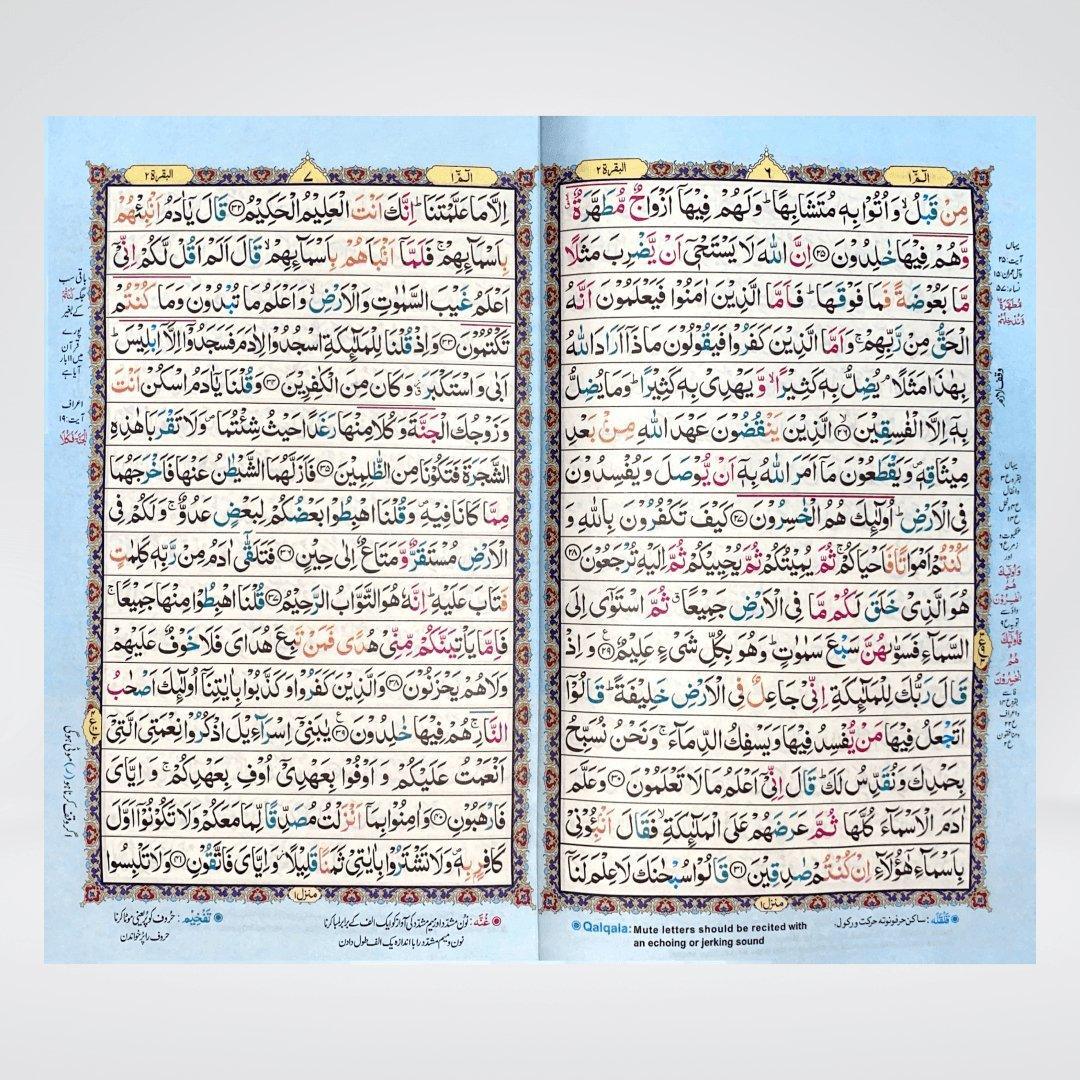 الٓمّٓ ١
٦
البقرة ٢
مِنْ قَبْلُ ۙ وَاُتُوْا بِهٖ مُتَشَابِهًا ؕ وَلَهُمْ فِيْهَاۤ اَزْوَاجٌ مُّطَهَّرَةٌ ۙۗ
وَّهُمْ فِيْهَا خٰلِدُوْنَ ﴿۲۵﴾ اِنَّ اللّٰهَ لَا يَسْتَحْىٖۤ اَنْ يَّضْرِبَ مَثَلًا
مَّا بَعُوْضَةً فَمَا فَوْقَهَا ؕ فَاَمَّا الَّذِيْنَ اٰمَنُوْا فَيَعْلَمُوْنَ اَنَّهُ
الْحَقُّ مِنْ رَّبِّهِمْ ۚ وَاَمَّا الَّذِيْنَ كَفَرُوْا فَيَقُوْلُوْنَ مَاذَاۤ اَرَادَ اللّٰهُ
بِهٰذَا مَثَلًا ۘ يُضِلُّ بِهٖ كَثِيْرًا ۙ وَّيَهْدِىْ بِهٖ كَثِيْرًا ؕ وَمَا يُضِلُّ
بِهٖۤ اِلَّا الْفٰسِقِيْنَ ۙ﴿۲۶﴾ الَّذِيْنَ يَنْقُضُوْنَ عَهْدَ اللّٰهِ مِنْۢ بَعْدِ
مِيْثَاقِهٖ ۪ وَيَقْطَعُوْنَ مَاۤ اَمَرَ اللّٰهُ بِهٖۤ اَنْ يُّوْصَلَ وَيُفْسِدُوْنَ
فِى الْاَرْضِ ؕ اُولٰٓئِكَ هُمُ الْخٰسِرُوْنَ ﴿۲۷﴾ كَيْفَ تَكْفُرُوْنَ بِاللّٰهِ وَ
كُنْتُمْ اَمْوَاتًا فَاَحْيَاكُمْ ۚ ثُمَّ يُمِيْتُكُمْ ثُمَّ يُحْيِيْكُمْ ثُمَّ اِلَيْهِ تُرْجَعُوْنَ ﴿۲۸﴾
هُوَ الَّذِىْ خَلَقَ لَكُمْ مَّا فِى الْاَرْضِ جَمِيْعًا ۗ ثُمَّ اسْتَوٰۤى اِلَى
السَّمَآءِ فَسَوّٰىهُنَّ سَبْعَ سَمٰوٰتٍ ؕ وَهُوَ بِكُلِّ شَىْءٍ عَلِيْمٌ ﴿۲۹﴾ وَاِذْ
قَالَ رَبُّكَ لِلْمَلٰٓئِكَةِ اِنِّىْ جَاعِلٌ فِى الْاَرْضِ خَلِيْفَةً ؕ قَالُوْۤا
اَتَجْعَلُ فِيْهَا مَنْ يُّفْسِدُ فِيْهَا وَيَسْفِكُ الدِّمَآءَ ۚ وَنَحْنُ نُسَبِّحُ
بِحَمْدِكَ وَنُقَدِّسُ لَكَ ؕ قَالَ اِنِّىْۤ اَعْلَمُ مَا لَا تَعْلَمُوْنَ ﴿۳۰﴾ وَعَلَّمَ
اٰدَمَ الْاَسْمَآءَ كُلَّهَا ثُمَّ عَرَضَهُمْ عَلَى الْمَلٰٓئِكَةِ ۙ فَقَالَ اَنْۢبِئُوْنِىْ
بِاَسْمَآءِ هٰٓؤُلَآءِ اِنْ كُنْتُمْ صٰدِقِيْنَ ﴿۳۱﴾ قَالُوْا سُبْحٰنَكَ لَا عِلْمَ لَنَاۤ
منزل ١
قلقله : ساکن حرفونوته حرکت ورکول.
Qalqala: Mute letters should be recited with
an echoing or jerking sound
الٓمّٓ ١
٧
البقرة ٢
اِلَّا مَا عَلَّمْتَنَا ؕ اِنَّكَ اَنْتَ الْعَلِيْمُ الْحَكِيْمُ ﴿۳۲﴾ قَالَ يٰۤاٰدَمُ اَنْۢبِئْهُمْ
بِاَسْمَآئِهِمْ ۚ فَلَمَّاۤ اَنْۢبَاَهُمْ بِاَسْمَآئِهِمْ ۙ قَالَ اَلَمْ اَقُلْ لَّكُمْ اِنِّىْۤ
اَعْلَمُ غَيْبَ السَّمٰوٰتِ وَالْاَرْضِ ۙ وَاَعْلَمُ مَا تُبْدُوْنَ وَمَا كُنْتُمْ
تَكْتُمُوْنَ ﴿۳۳﴾ وَاِذْ قُلْنَا لِلْمَلٰٓئِكَةِ اسْجُدُوْا لِاٰدَمَ فَسَجَدُوْۤا اِلَّاۤ اِبْلِيْسَ ؕ
اَبٰى وَاسْتَكْبَرَ ۫ وَكَانَ مِنَ الْكٰفِرِيْنَ ﴿۳۴﴾ وَقُلْنَا يٰۤاٰدَمُ اسْكُنْ اَنْتَ
وَزَوْجُكَ الْجَنَّةَ وَكُلَا مِنْهَا رَغَدًا حَيْثُ شِئْتُمَا ۪ وَلَا تَقْرَبَا هٰذِهِ
الشَّجَرَةَ فَتَكُوْنَا مِنَ الظّٰلِمِيْنَ ﴿۳۵﴾ فَاَزَلَّهُمَا الشَّيْطٰنُ عَنْهَا فَاَخْرَجَهُمَا
مِمَّا كَانَا فِيْهِ ۪ وَقُلْنَا اهْبِطُوْا بَعْضُكُمْ لِبَعْضٍ عَدُوٌّ ۚ وَلَكُمْ فِى
الْاَرْضِ مُسْتَقَرٌّ وَّمَتَاعٌ اِلٰى حِيْنٍ ﴿۳۶﴾ فَتَلَقّٰۤى اٰدَمُ مِنْ رَّبِّهٖ كَلِمٰتٍ
فَتَابَ عَلَيْهِ ؕ اِنَّهٗ هُوَ التَّوَّابُ الرَّحِيْمُ ﴿۳۷﴾ قُلْنَا اهْبِطُوْا مِنْهَا جَمِيْعًا ۚ
فَاِمَّا يَاْتِيَنَّكُمْ مِّنِّىْ هُدًى فَمَنْ تَبِعَ هُدَاىَ فَلَا خَوْفٌ عَلَيْهِمْ
وَلَا هُمْ يَحْزَنُوْنَ ﴿۳۸﴾ وَالَّذِيْنَ كَفَرُوْا وَكَذَّبُوْا بِاٰيٰتِنَاۤ اُولٰٓئِكَ اَصْحٰبُ
النَّارِ ۚ هُمْ فِيْهَا خٰلِدُوْنَ ﴿۳۹﴾ يٰبَنِىْۤ اِسْرَآءِيْلَ اذْكُرُوْا نِعْمَتِىَ الَّتِىْۤ
اَنْعَمْتُ عَلَيْكُمْ وَاَوْفُوْا بِعَهْدِىْۤ اُوْفِ بِعَهْدِكُمْ ۚ وَاِيَّاىَ
فَارْهَبُوْنِ ﴿۴۰﴾ وَاٰمِنُوْا بِمَاۤ اَنْزَلْتُ مُصَدِّقًا لِّمَا مَعَكُمْ وَلَا تَكُوْنُوْۤا اَوَّلَ
كَافِرٍۢ بِهٖ ۪ وَلَا تَشْتَرُوْا بِاٰيٰتِىْ ثَمَنًا قَلِيْلًا ۫ وَّاِيَّاىَ فَاتَّقُوْنِ ﴿۴۱﴾ وَلَا تَلْبِسُوا
منزل ١
غُنَّه : نون مشدد اور میم مشدد کی آواز کو ایک الف کے برابر لمبا کرنا
نون و میم مشدد را با اندازه یک الف طول دادن
تَفْخِیْم : حروف کو پُر یعنی موٹا کرنا
حروف را پُر خواندن